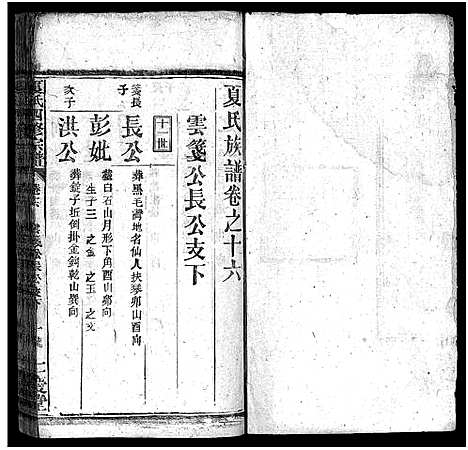 夏氏族譜卷之十六
雲箋公長公支下
十一世
箋長子
長公
葬黑毛灣地名仙人扶琴卯山酉向
彭妣
葬白石山月形下角酉山卯向
生子三 之金 之玉 之文
次子
洪公
葬錠子坵倒掛金鈎乾山巽向
夏氏四修宗譜